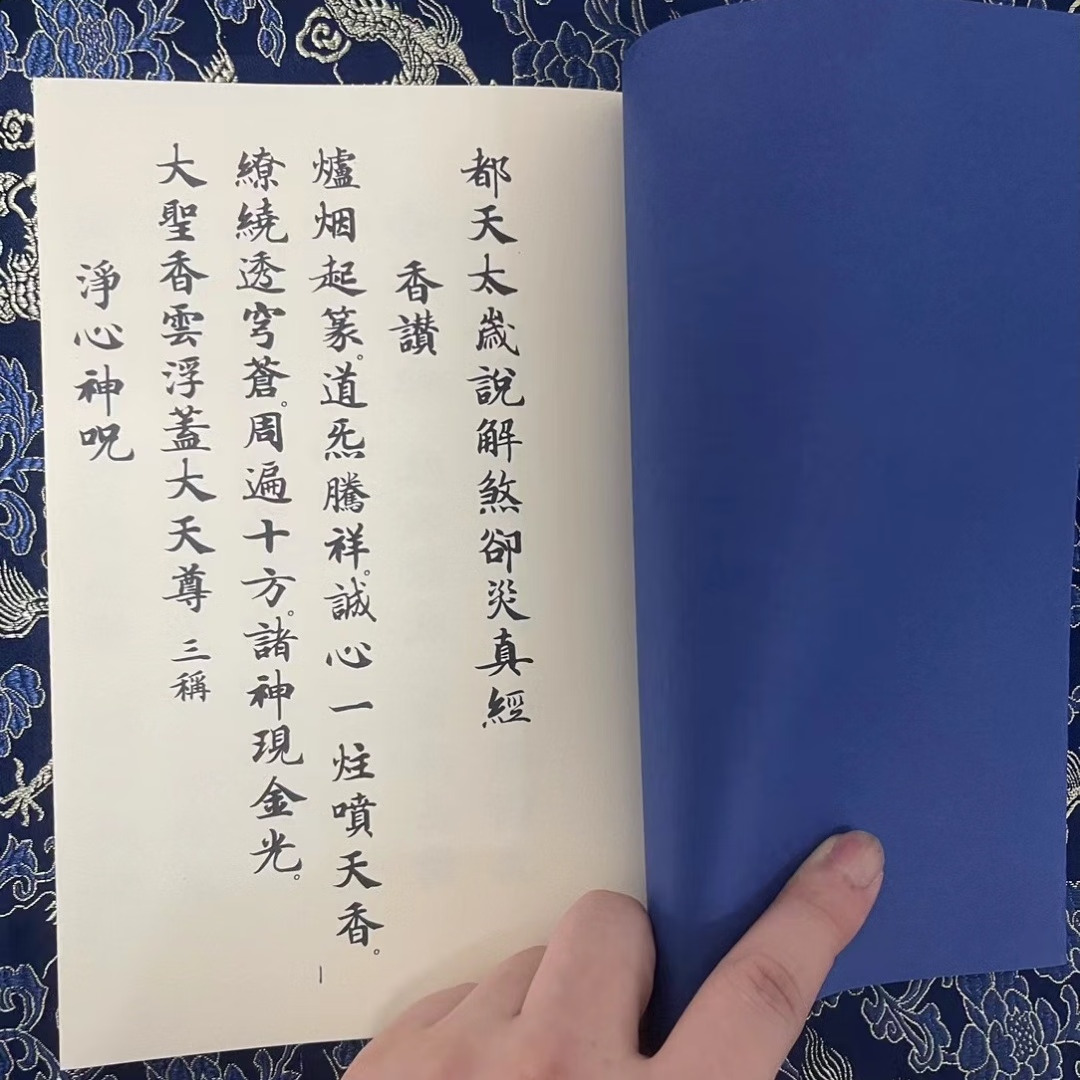 都天太歲說解煞卻災真經
香讚
爐烟起篆。道炁騰祥。誠心一炷噴天香。
繚繞透穹蒼。周遍十方。諸神現金光。
大聖香雲浮蓋大天尊 三稱
淨心神呪
1